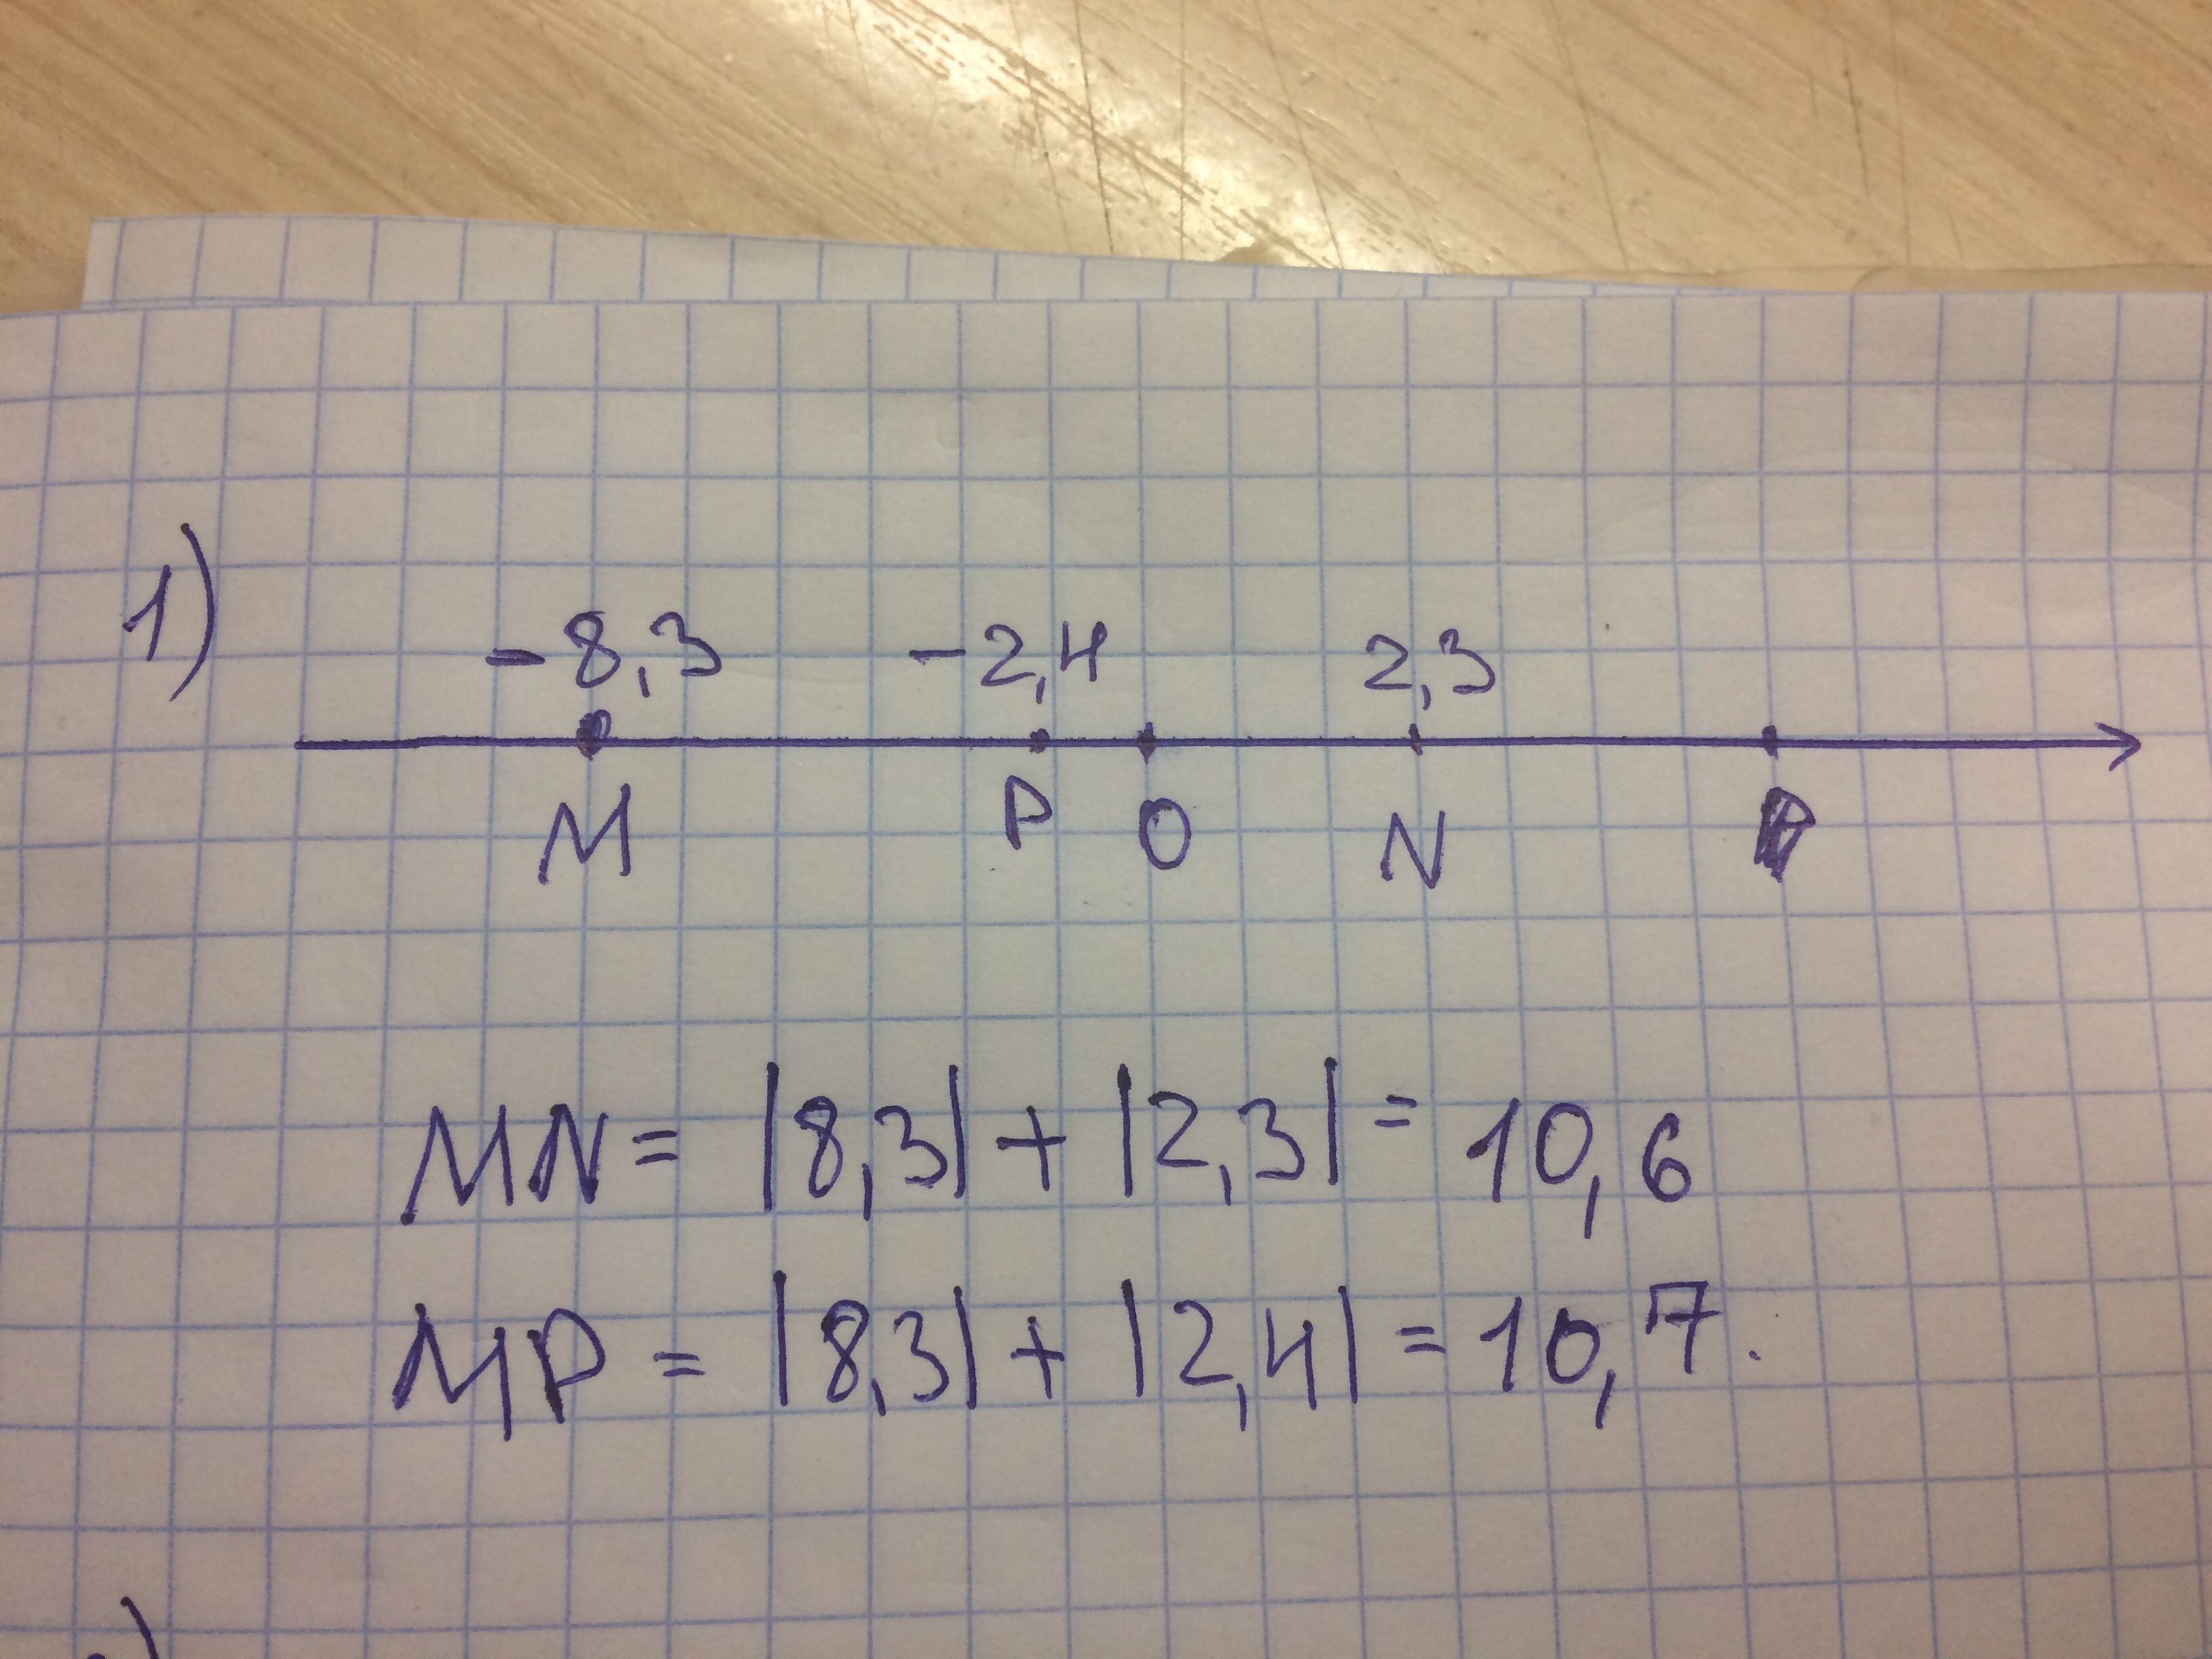 1)
-8,3 -2,4 2,3
M P O N
MN= |8,3|+|2,3|= 10,6
MP = |8,3|+ |2,4|=10,7.